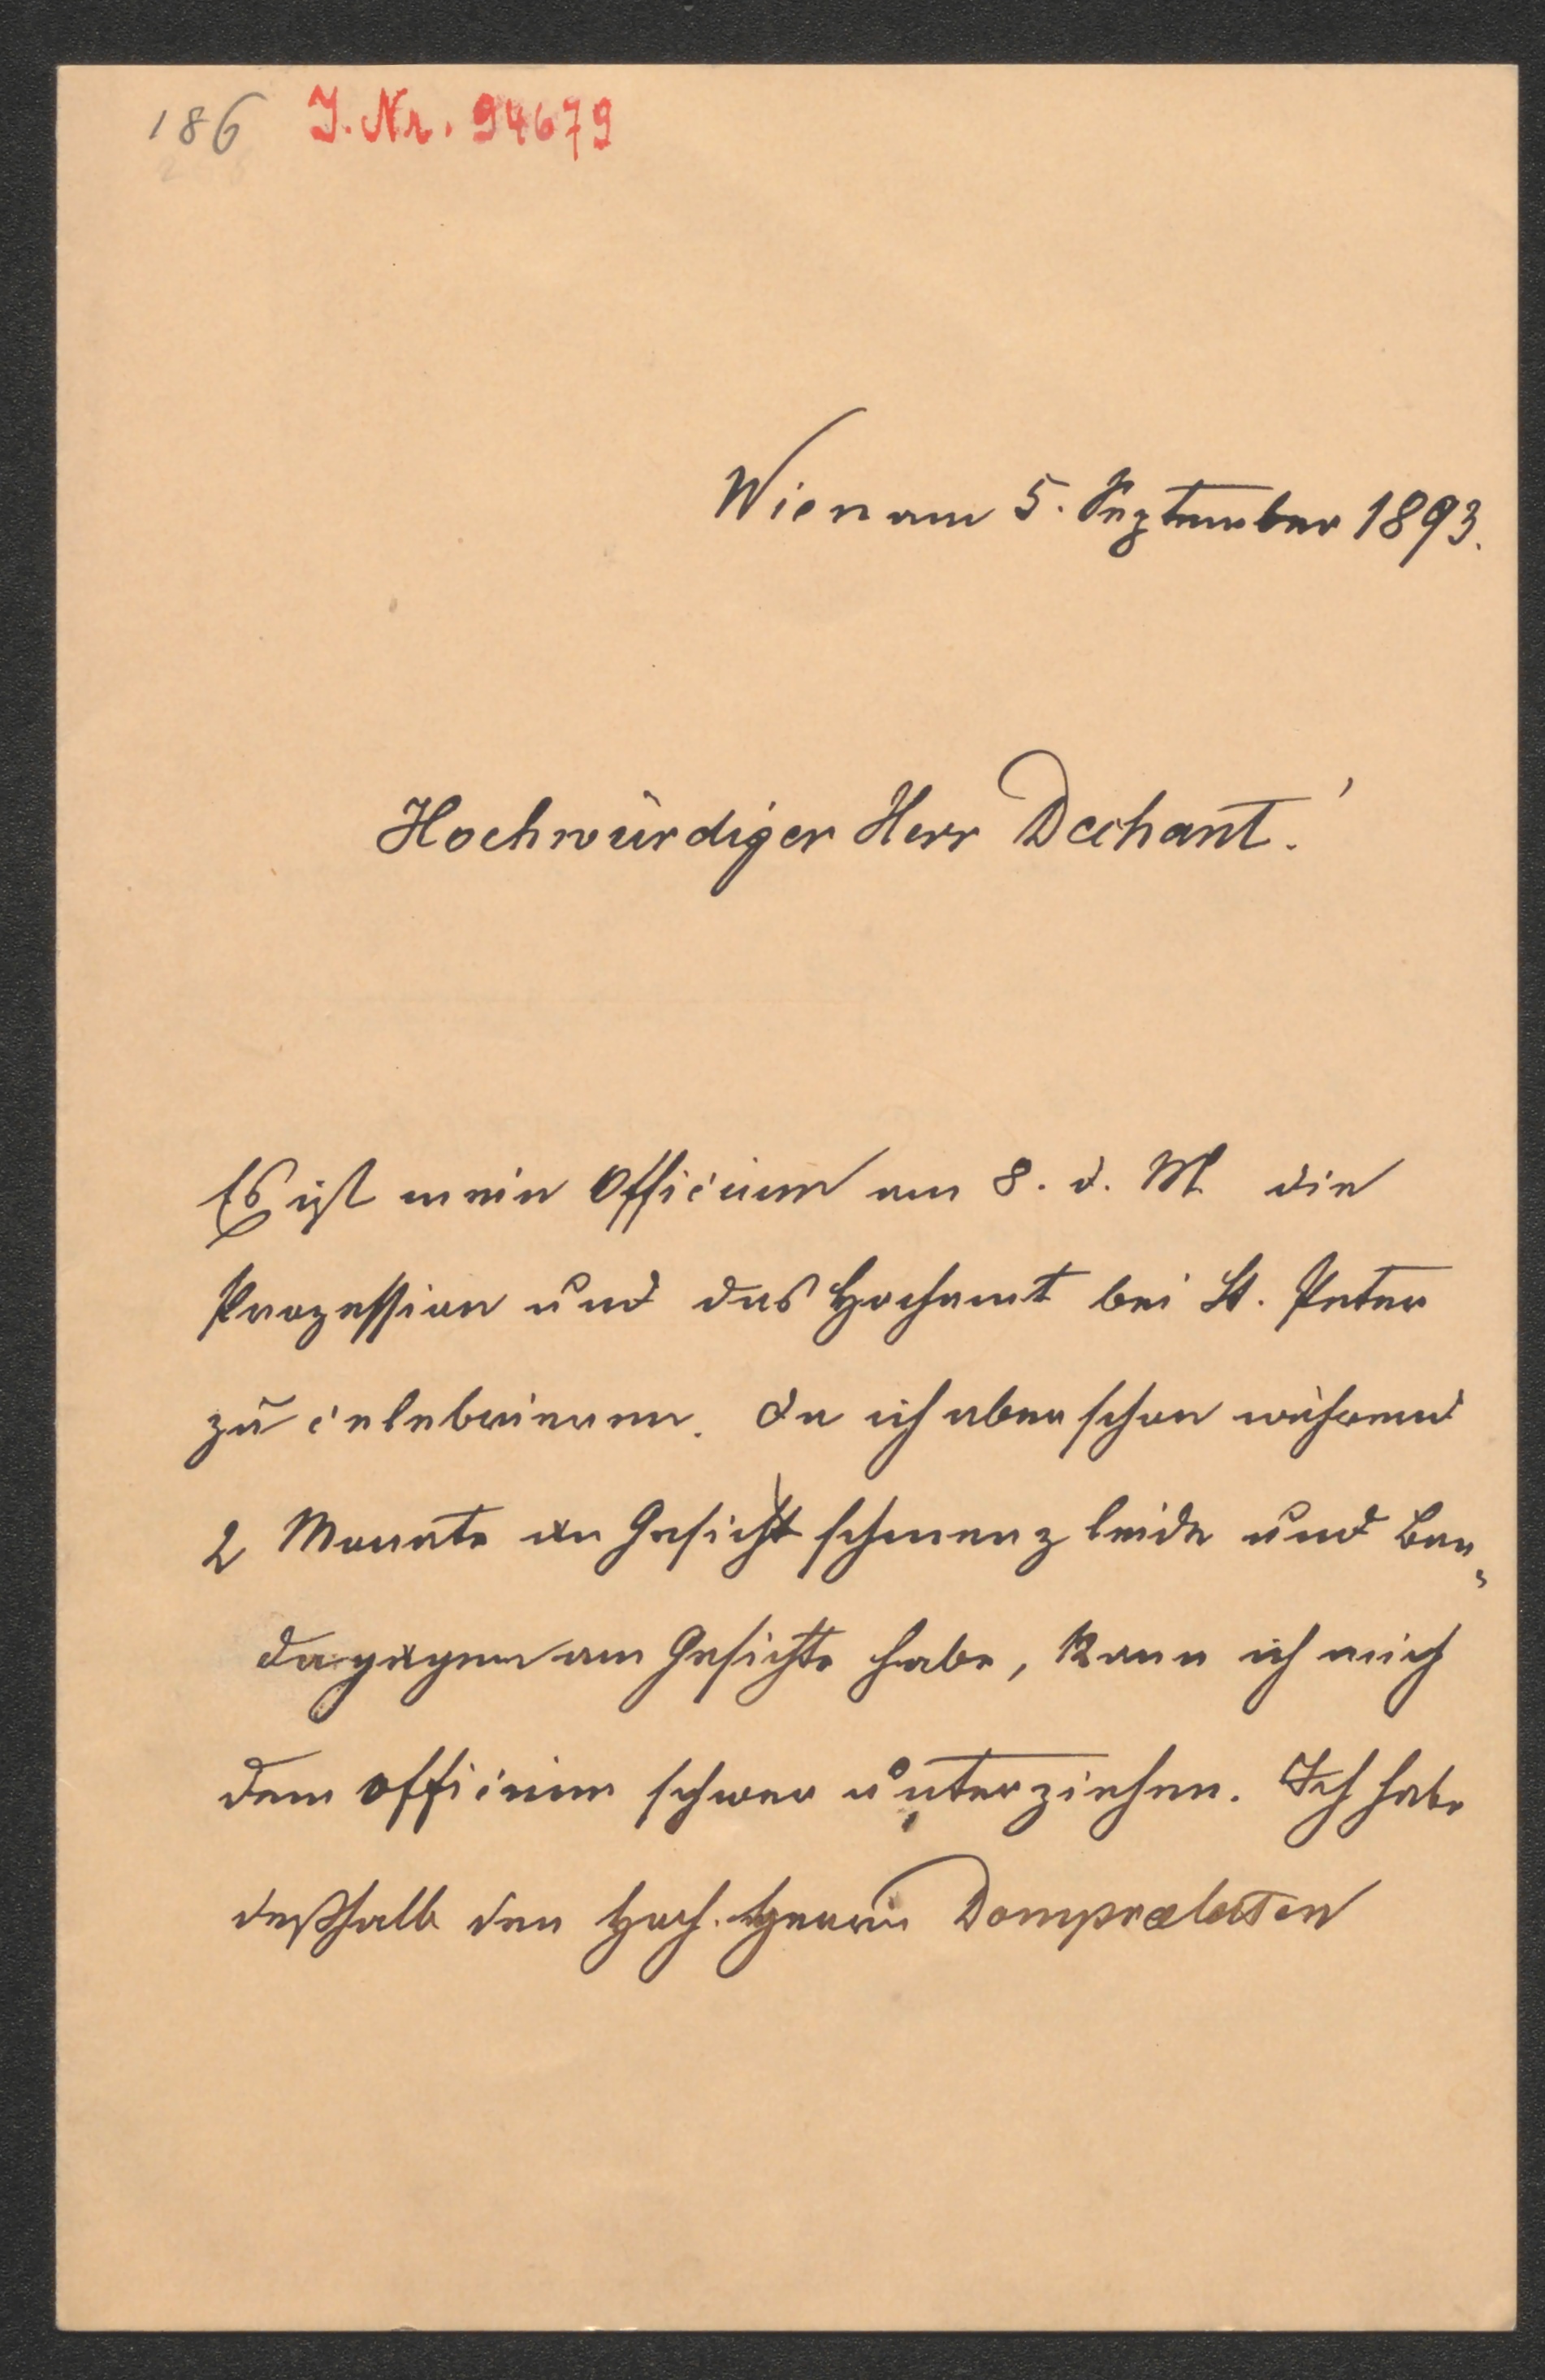 186 J. Nr. 94679
Wien am 5. September 1893.
Hochwürdiger Herr Dechant!
Es ist mein Officium am 8. d. M. die
Prozession und das Hochamt bei St. Peter
zu celebrieren. Da ich aber schon während
2 Monate an Gesichtschmerz leide und Ban,
dagen am Gesichte habe, kann ich mich
dem Officium schwer unterziehen. Ich habe
deßhalb den Hoch. Herrn Domprælaten